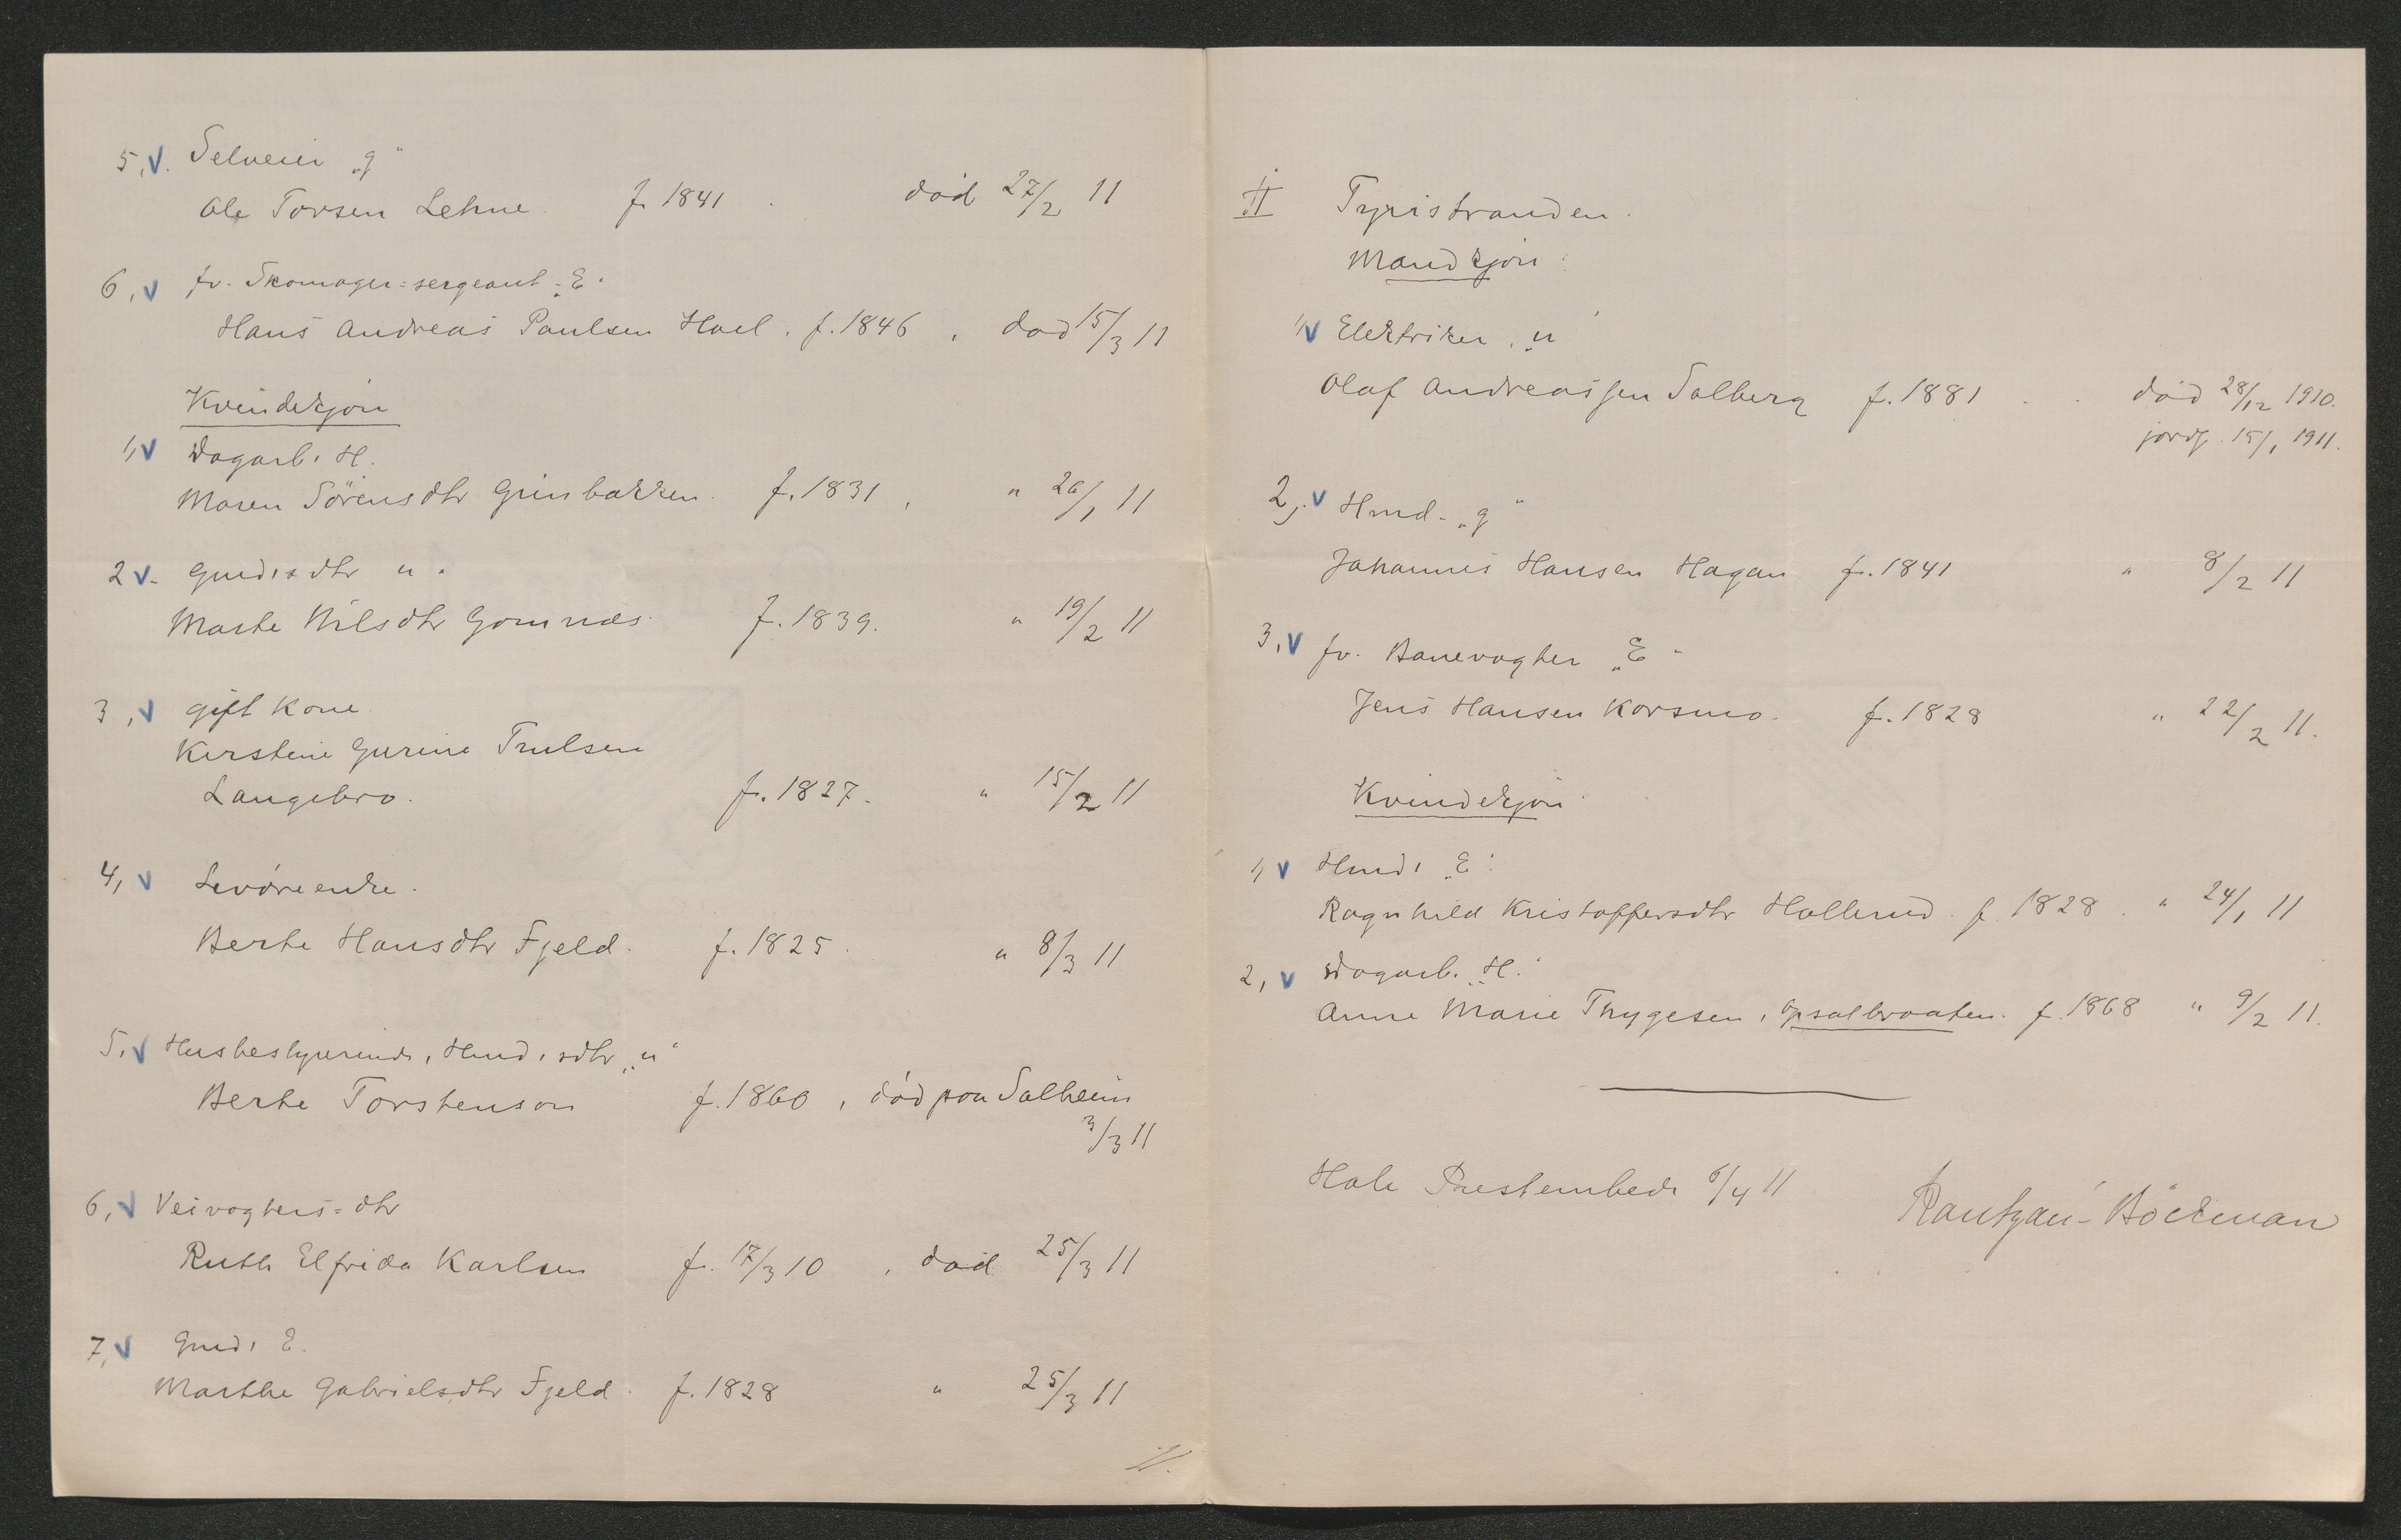 5, v. Selveier „g“
Ole Torsen Lehne. f. 1841. død 27/2 11
6, v fv. Skomager=sergeant „E“
Hans Andreas Paulsen Hoel. f. 1846, død 15/3 11
Kvindekjøn
1, v Dagarb. H.
Maren Sörensdtr Grinbakken. f. 1831, " 20/1 11
2 v. Gmd.s dtr u.
Marte Nilsdtr Gomnæs. f. 1839. " 19/2 11
3, v gift Kone
Kirstine Gurine Trulsen
Langebro. f. 1827. " 15/2 11
4, v Levöreenke.
Berte Hansdtr Fjeld. f. 1825. " 8/3 11
5, v Husbestyrerinde, Hmd.sdtr „u“
Berte Torstenson f. 1860, död paa Solheim
3/3 11
6, v Veivogters=dtr
Ruth Elfrida Karlsen f. 17/3 10, død 25/3 11
7, v Gmd. E.
Marthe Gabrielsdtr Fjeld. f. 1828 " 25/3 11
//.
II Tyristranden.
Mandkjøn
1, v Elektriker „u“
Olaf Andreassen Solberg f. 1881 . . död 28/12 1910.
jordf. 15/1 1911.
2, v Hmd. „g“
Johannes Hansen Hagan f. 1841 " 8/2 11
3, v fv. Banevogter „E“
Jens Hansen Korsmo. f. 1828 " 22/2 11.
Kvindekjön
1, v Hmd. „E“
Ragnhild Kristoffersdtr Hollerud f. 1828. " 24/1 11
2, v Dagarb. „H.“
Anne Marie Thygesen, Opsalbraaten. f. 1868 " 9/2 11.
Hole Prestembede 6/4 11
Rantzau-Böckman